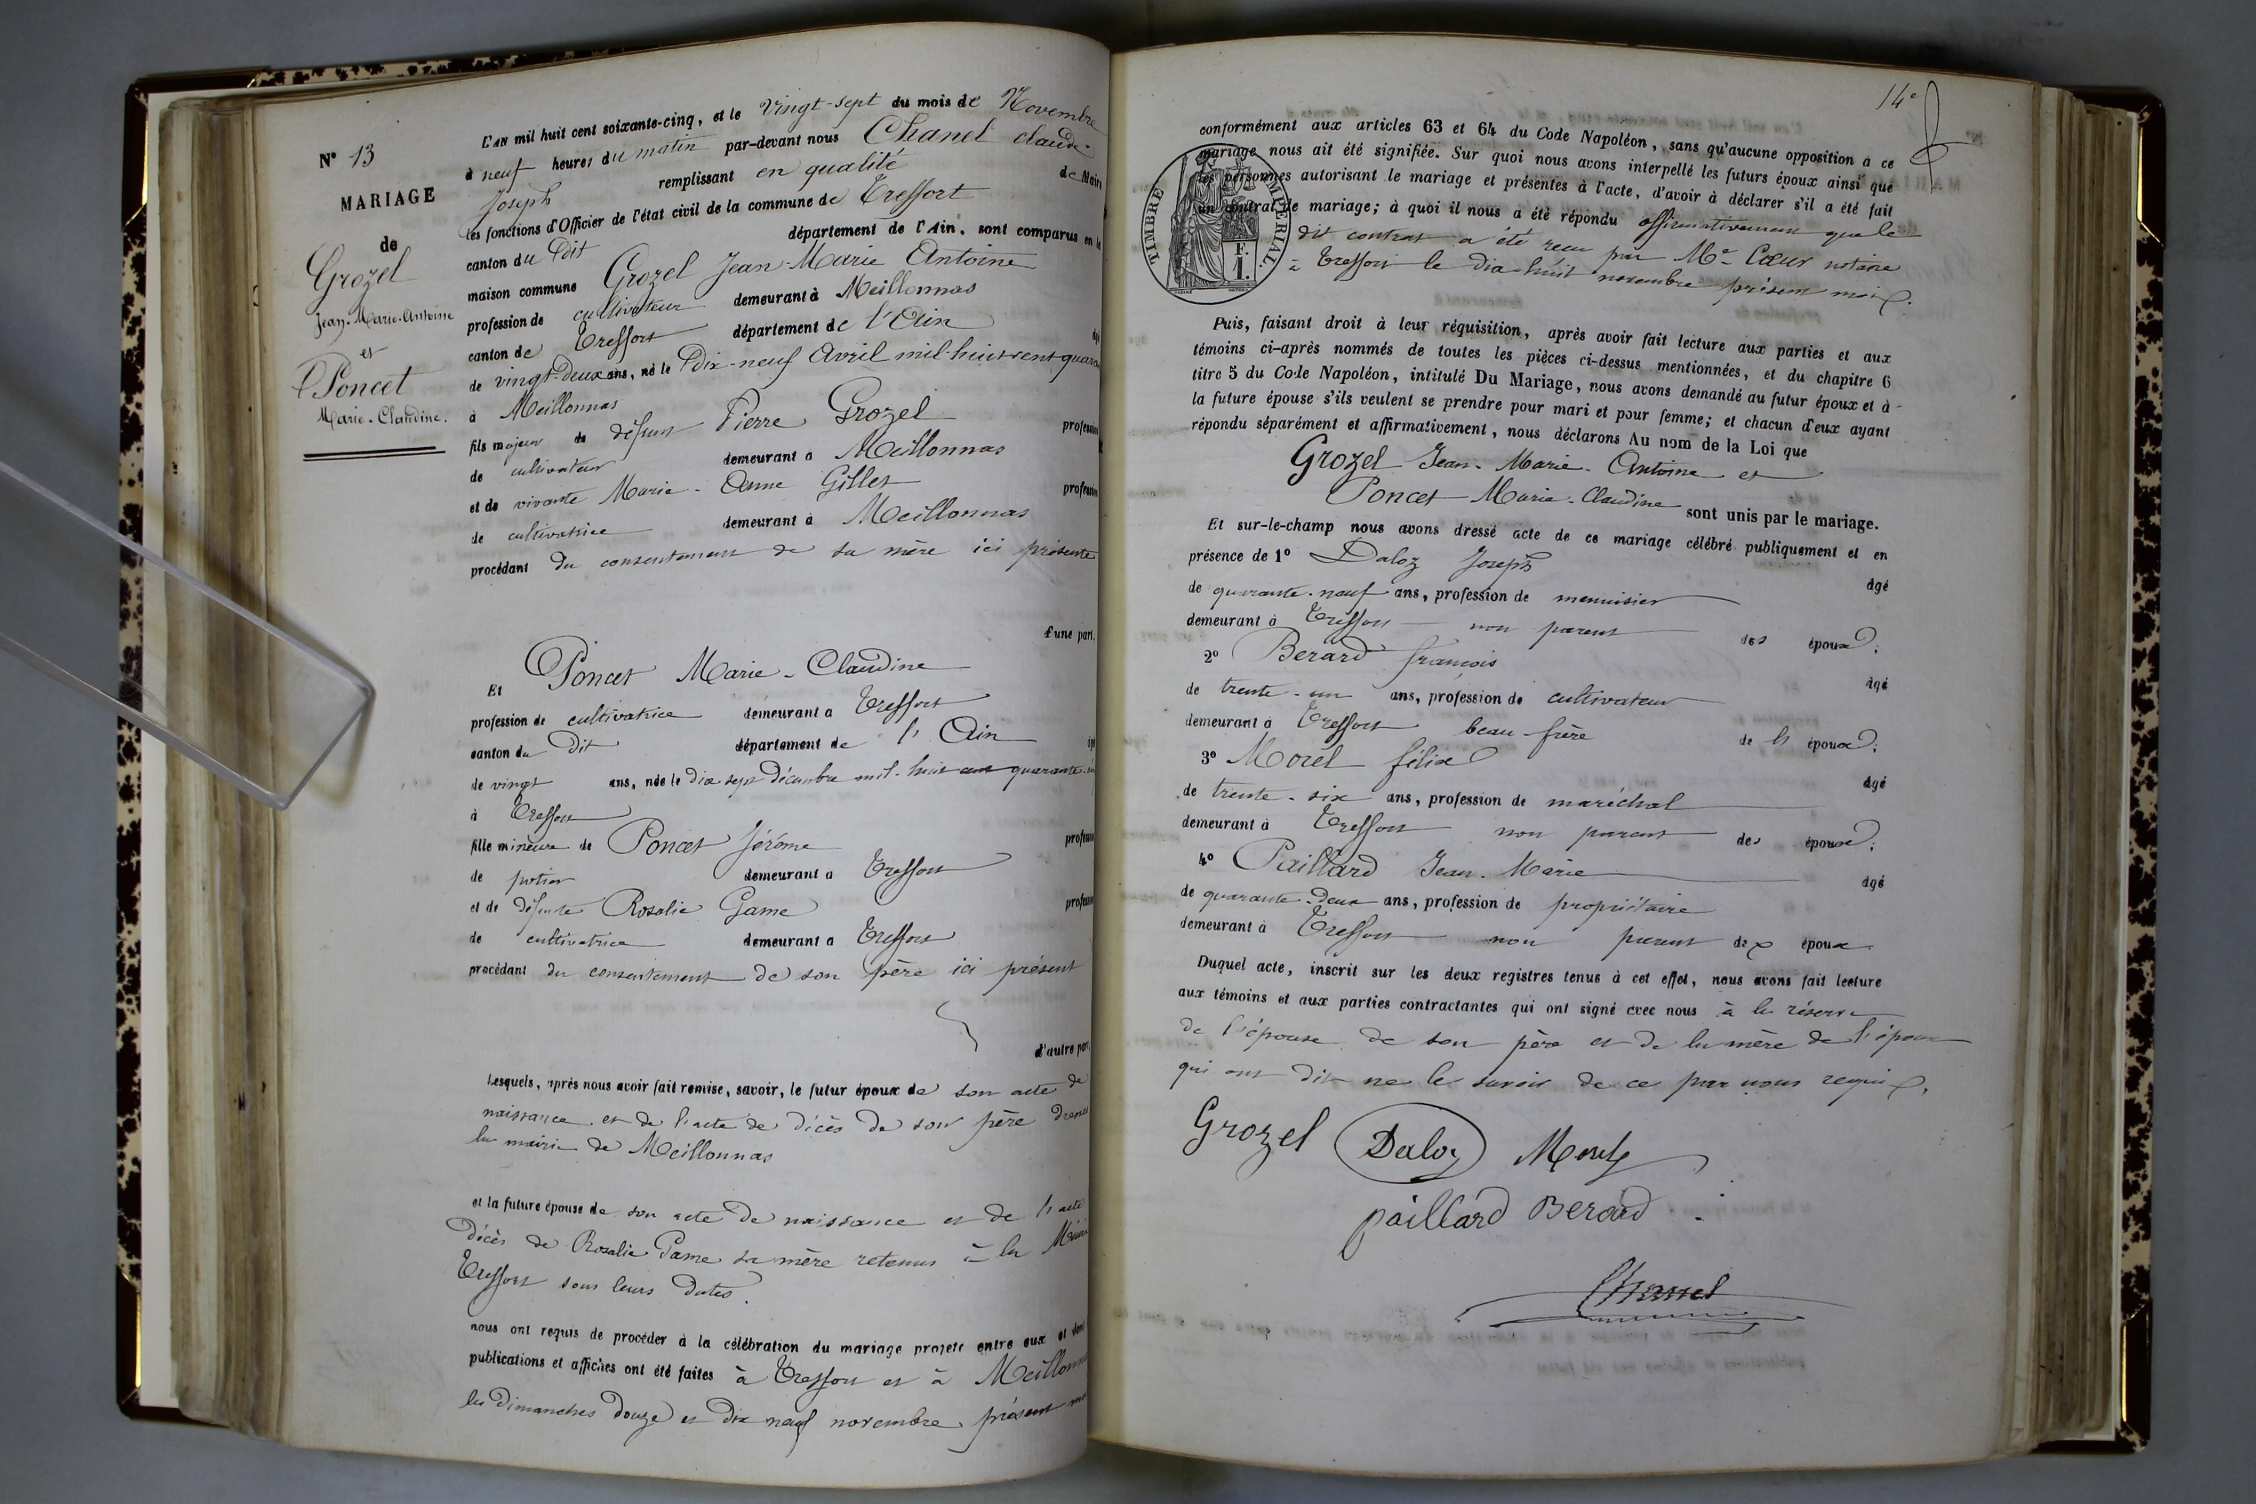 N° 13
MARIAGE
de
Grozel
Jean-Marie-Antoine
et
Poncet
Marie-Claudine.
L'AN mil huit cent soixante-cinq, et le Vingt-sept du mois de Novembre
à neuf heures du matin par-devant nous Chanel claude-
Joseph remplissant en qualité de Maire
les fonctions d'Officier de l'état civil de la commune de Treffort
canton du dit département de l'Ain, sont comparus en la
maison commune Grozel Jean-Marie Antoine
profession de cultivateur demeurant à Meillonnas
canton de Treffort département de l'Ain
de vingt-deux ans, né le dix-neuf Avril mil-huit-cent-quara
à Meillonnas
fils majeur de défunt Pierre Grozel profession
de cultivateur demeurant à Meillonnas
et de vivante Marie-Anne Gillet profession
de cultivatrice demeurant à Meillonnas
procédant du consentement de sa mère ici présente
d'une part.
Et Poncet Marie-Claudine
profession de cultivatrice demeurant à Treffort
canton du dit département de l'Ain
de vingt ans, née le dix sept décembre mil-huit cent quarante
à Treffort
fille mineure de Poncet Jérôme profession
de potier demeurant à Treffort
et de défunte Rosalie Game profession
de cultivatrice demeurant à Treffort
procédant du consentement de son père ici présent
d'autre part.
Lesquels, après nous avoir fait remise, savoir, le futur époux de son acte de
naissance et de l'acte de décès de son père
la mairie de Meillonnas
et la future épouse de son acte de naissance et de l'acte
décès de Rosalie Game sa mère retenus à la Mairie
Treffort sous leurs dates.
nous ont requis de procéder à la célébration du mariage projeté entre eux et dont
publications et affiches ont été faites à Treffort et à Meillonnas
les dimanches douze et dix neuf novembre présent mois
14e
conformément aux articles 63 et 64 du Code Napoléon, sans qu'aucune opposition à ce
mariage nous ait été signifiée. Sur quoi nous avons interpellé les futurs époux ainsi que
les personnes autorisant le mariage et présentes à l'acte, d'avoir à déclarer s'il a été fait
un contrat de mariage; à quoi il nous a été répondu affirmativement que le
dit contrat a été reçu par Me Cœur notaire
à Treffort le dix-huit novembre présent mois.
TIMBRE IMPERIAL.
F.
1.
Puis, faisant droit à leur réquisition, après avoir fait lecture aux parties et aux
témoins ci-après nommés de toutes les pièces ci-dessus mentionnées, et du chapitre 6
titre 5 du Code Napoléon, intitulé Du Mariage, nous avons demandé au futur époux et à
la future épouse s'ils veulent se prendre pour mari et pour femme; et chacun d'eux ayant
répondu séparément et affirmativement, nous déclarons Au nom de la Loi que
Grozel Jean-Marie-Antoine et
Poncet Marie-Claudine sont unis par le mariage.
Et sur-le-champ nous avons dressé acte de ce mariage célébré publiquement et en
présence de 1° Daloz Joseph âgé
de quarante-neuf ans, profession de menuisier
demeurant à Treffort non parent des époux.
2° Berard françois âgé
de trente-un ans, profession de cultivateur
demeurant à Treffort beau-frère de l' époux.
3° Morel félix âgé
de trente-six ans, profession de maréchal
demeurant à Treffort non parent des époux.
4° Paillard Jean-Marie âgé
de quarante-deux ans, profession de propriétaire
demeurant à Treffort non parent des époux
Duquel acte, inscrit sur les deux registres tenus à cet effet, nous avons fait lecture
aux témoins et aux parties contractantes qui ont signé avec nous à la réserve
de l'épouse de son père et de la mère de l'époux
qui ont dit ne le savoir de ce par nous requis.
Grozel Daloz Morel
paillard Berard
Chanel